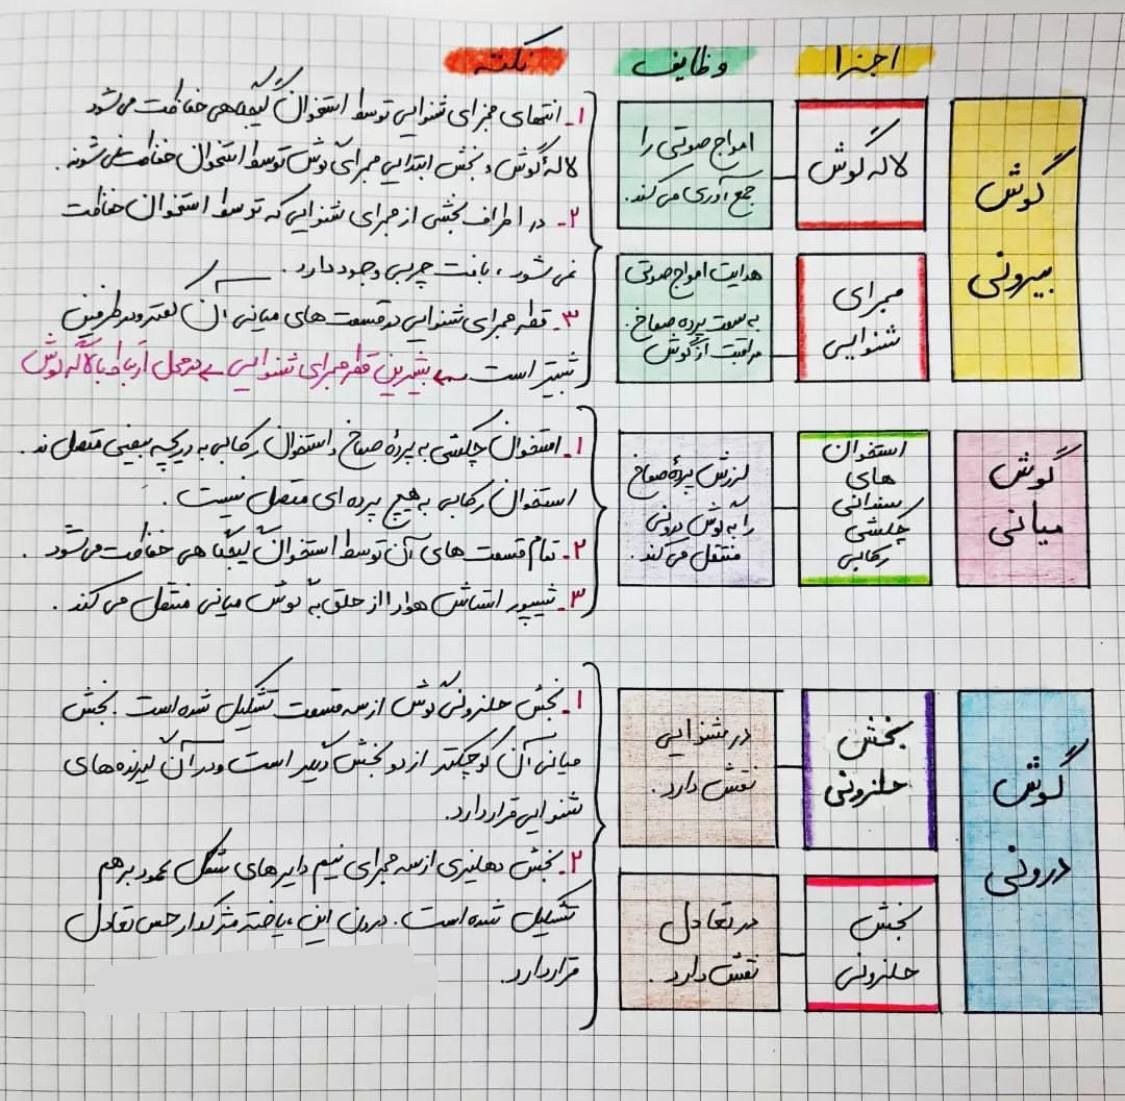 اجزا
وظایف
نکته
گوش
بیرونی
لاله گوش
امواج صوتی را
جمع آوری می‌کند.
مجرای
شنوایی
هدایت امواج صوتی
به سمت پرده صماخ.
مراقبت از گوش
۱- انتهای مجرای شنوایی توسط استخوان گیجگاهی حفاظت می‌شود
لالهٔ گوش و بخش ابتدایی مجرای گوش توسط استخوان حفاظت نمی شوند.
۲- در اطراف بخشی از مجرای شنوایی که توسط استخوان حفاظت
نمی شود، بافت چربی وجود دارد.
۳- قطر مجرای شنوایی در قسمت های میانی آن کمتر و در طرفین
بیشتر است ← بیشترین قطر مجرای شنوایی ← در محل ارتباط با لاله گوش
گوش
میانی
استخوان
های
سندانی
چکشی
رکابی
لرزش پردهٔ صماخ
را به گوش درونی
منتقل می‌کند.
۱- استخوان چکشی به پردهٔ صماخ و استخوان رکابی به دریچه بیضی متصل‌ند.
استخوان رکابی به هیچ پرده ای متصل نیست.
۲- تمام قسمت های آن توسط استخوان گیجگاهی حفاظت می‌شود.
۳- شیپور استاش هوا را از حلق به گوش میانی منتقل می کند.
گوش
درونی
بخش
حلزونی
در شنوایی
نقش دارد.
بخش
حلزونی
در تعادل
نقش دارد.
۱- بخش حلزونی گوش از سه قسمت تشکیل شده است. بخش
میانی آن کوچکتر از دو بخش دیگر است و در آن گیرنده های
شنوایی قرار دارد.
۲- بخش دهلیزی از سه مجرای نیم دایره‌ای شکل عمود بر هم
تشکیل شده است. درون این یاخته مژکدار حس تعادل
قرار دارد.